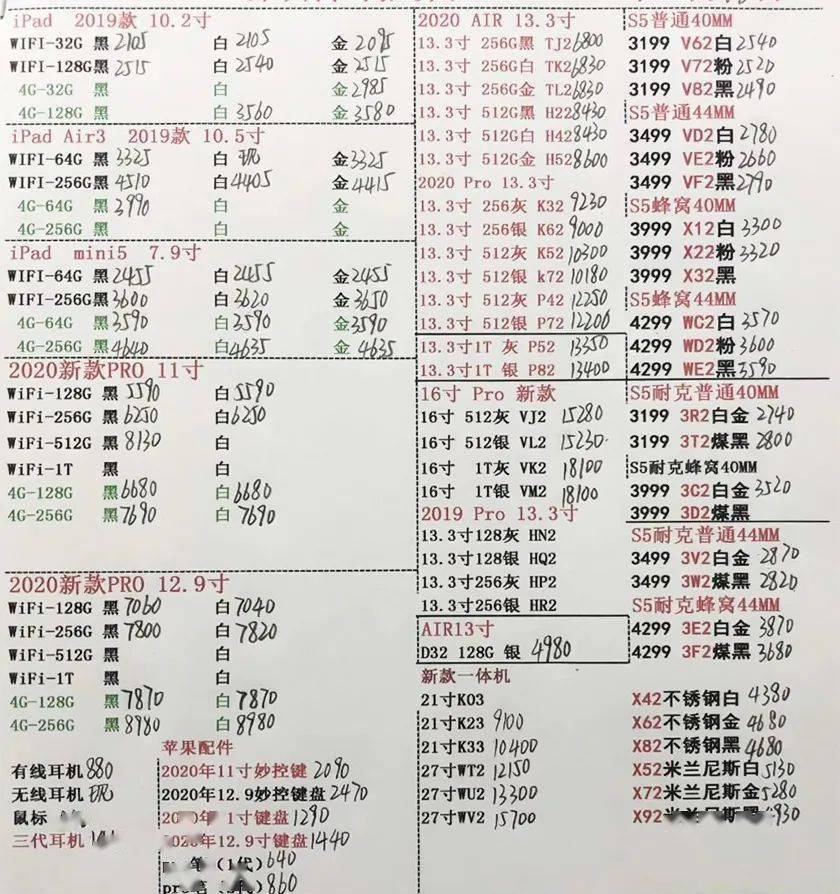 iPad 2019款 10.2寸
WIFI-32G 黑 2105 白 2105 金 2095
WIFI-128G黑 2515 白 2540 金 2515
4G-32G 黑 白 金 2985
4G-128G 黑 白 3560 金 3580
iPad Air3 2019款 10.5寸
WIFI-64G 黑 3325 白 现 金3325
WIFI-256G黑 4510 白4405 金4415
4G-64G 黑 3990 白 金
4G-256G 黑 白 金
iPad mini5 7.9寸
WIFI-64G 黑2455 白2455 金2455
WIFI-256G黑3600 白3620 金3650
4G-64G 黑3590 白3590 金3590
4G-256G 黑4640 白4635 金 4635
2020新款PRO 11寸
WiFi-128G 黑 5590 白5590
WiFi-256G 黑 6250 白6250
WiFi-512G 黑 8130 白
WiFi-1T 黑 白
4G-128G 黑6680 白6680
4G-256G 黑7690 白 7690
2020新款PRO 12.9寸
WiFi-128G 黑 7060 白 7040
WiFi-256G 黑 7800 白 7820
WiFi-512G 黑 白
WiFi-1T 黑 白
4G-128G 黑7870 白 7870
4G-256G 黑8980 白 8980
有线耳机 880
无线耳机 现
鼠标
三代耳机
苹果配件
2020年11寸妙控键 2090
2020年12.9妙控键盘 2470
1寸键盘 1290
年12.9寸键盘 1440
笔（1代）640
860
2020 AIR 13.3寸
13.3寸 256G黑 TJ2 6800
13.3寸 256G白 TK2 6830
13.3寸 256G金 TL2 6830
13.3寸 512G黑 H22 8430
13.3寸 512G白 H42 8430
13.3寸 512G金 H52 8600
2020 Pro 13.3寸
13.3寸 256灰 K32 9230
13.3寸 256银 K62 9000
13.3寸 512灰 K52 10300
13.3寸 512银 k72 10180
13.3寸 512灰 P42 12250
13.3寸 512银 P72 12200
13.3寸1T 灰 P52 13350
13.3寸1T 银 P82 13400
16寸 Pro 新款
16寸 512灰 VJ2 15280
16寸 512银 VL2 15230
16寸 1T灰 VK2 18100
16寸 1T银 VM2 18100
2019 Pro 13.3寸
13.3寸128灰 HN2
13.3寸128银 HQ2
13.3寸256灰 HP2
13.3寸256银 HR2
AIR13寸
D32 128G 银 4980
新款一体机
21寸K03
21寸K23 9100
21寸K33 10400
27寸WT2 12150
27寸WU2 13300
27寸WV2 15700
S5普通40MM
3199 V62白 2540
3199 V72粉 2520
3199 V82黑 2490
S5普通44MM
3499 VD2白 2780
3499 VE2粉 2660
3499 VF2黑 2790
S5蜂窝40MM
3999 X12白 3300
3999 X22粉 3320
3999 X32黑
S5蜂窝44MM
4299 WC2白 3570
4299 WD2粉 3600
4299 WE2黑 3590
S5耐克普通40MM
3199 3R2白金 2740
3199 3T2煤黑 2800
S5耐克蜂窝40MM
3999 3C2白金 3520
3999 3D2煤黑
S5耐克普通44MM
3499 3V2白金 2870
3499 3W2煤黑 2820
S5耐克蜂窝44MM
4299 3E2白金 3870
4299 3F2煤黑 3680
X42不锈钢白 4380
X62不锈钢金 4680
X82不锈钢黑 4680
X52米兰尼斯白 5130
X72米兰尼斯金 5280
X92米兰尼斯黑